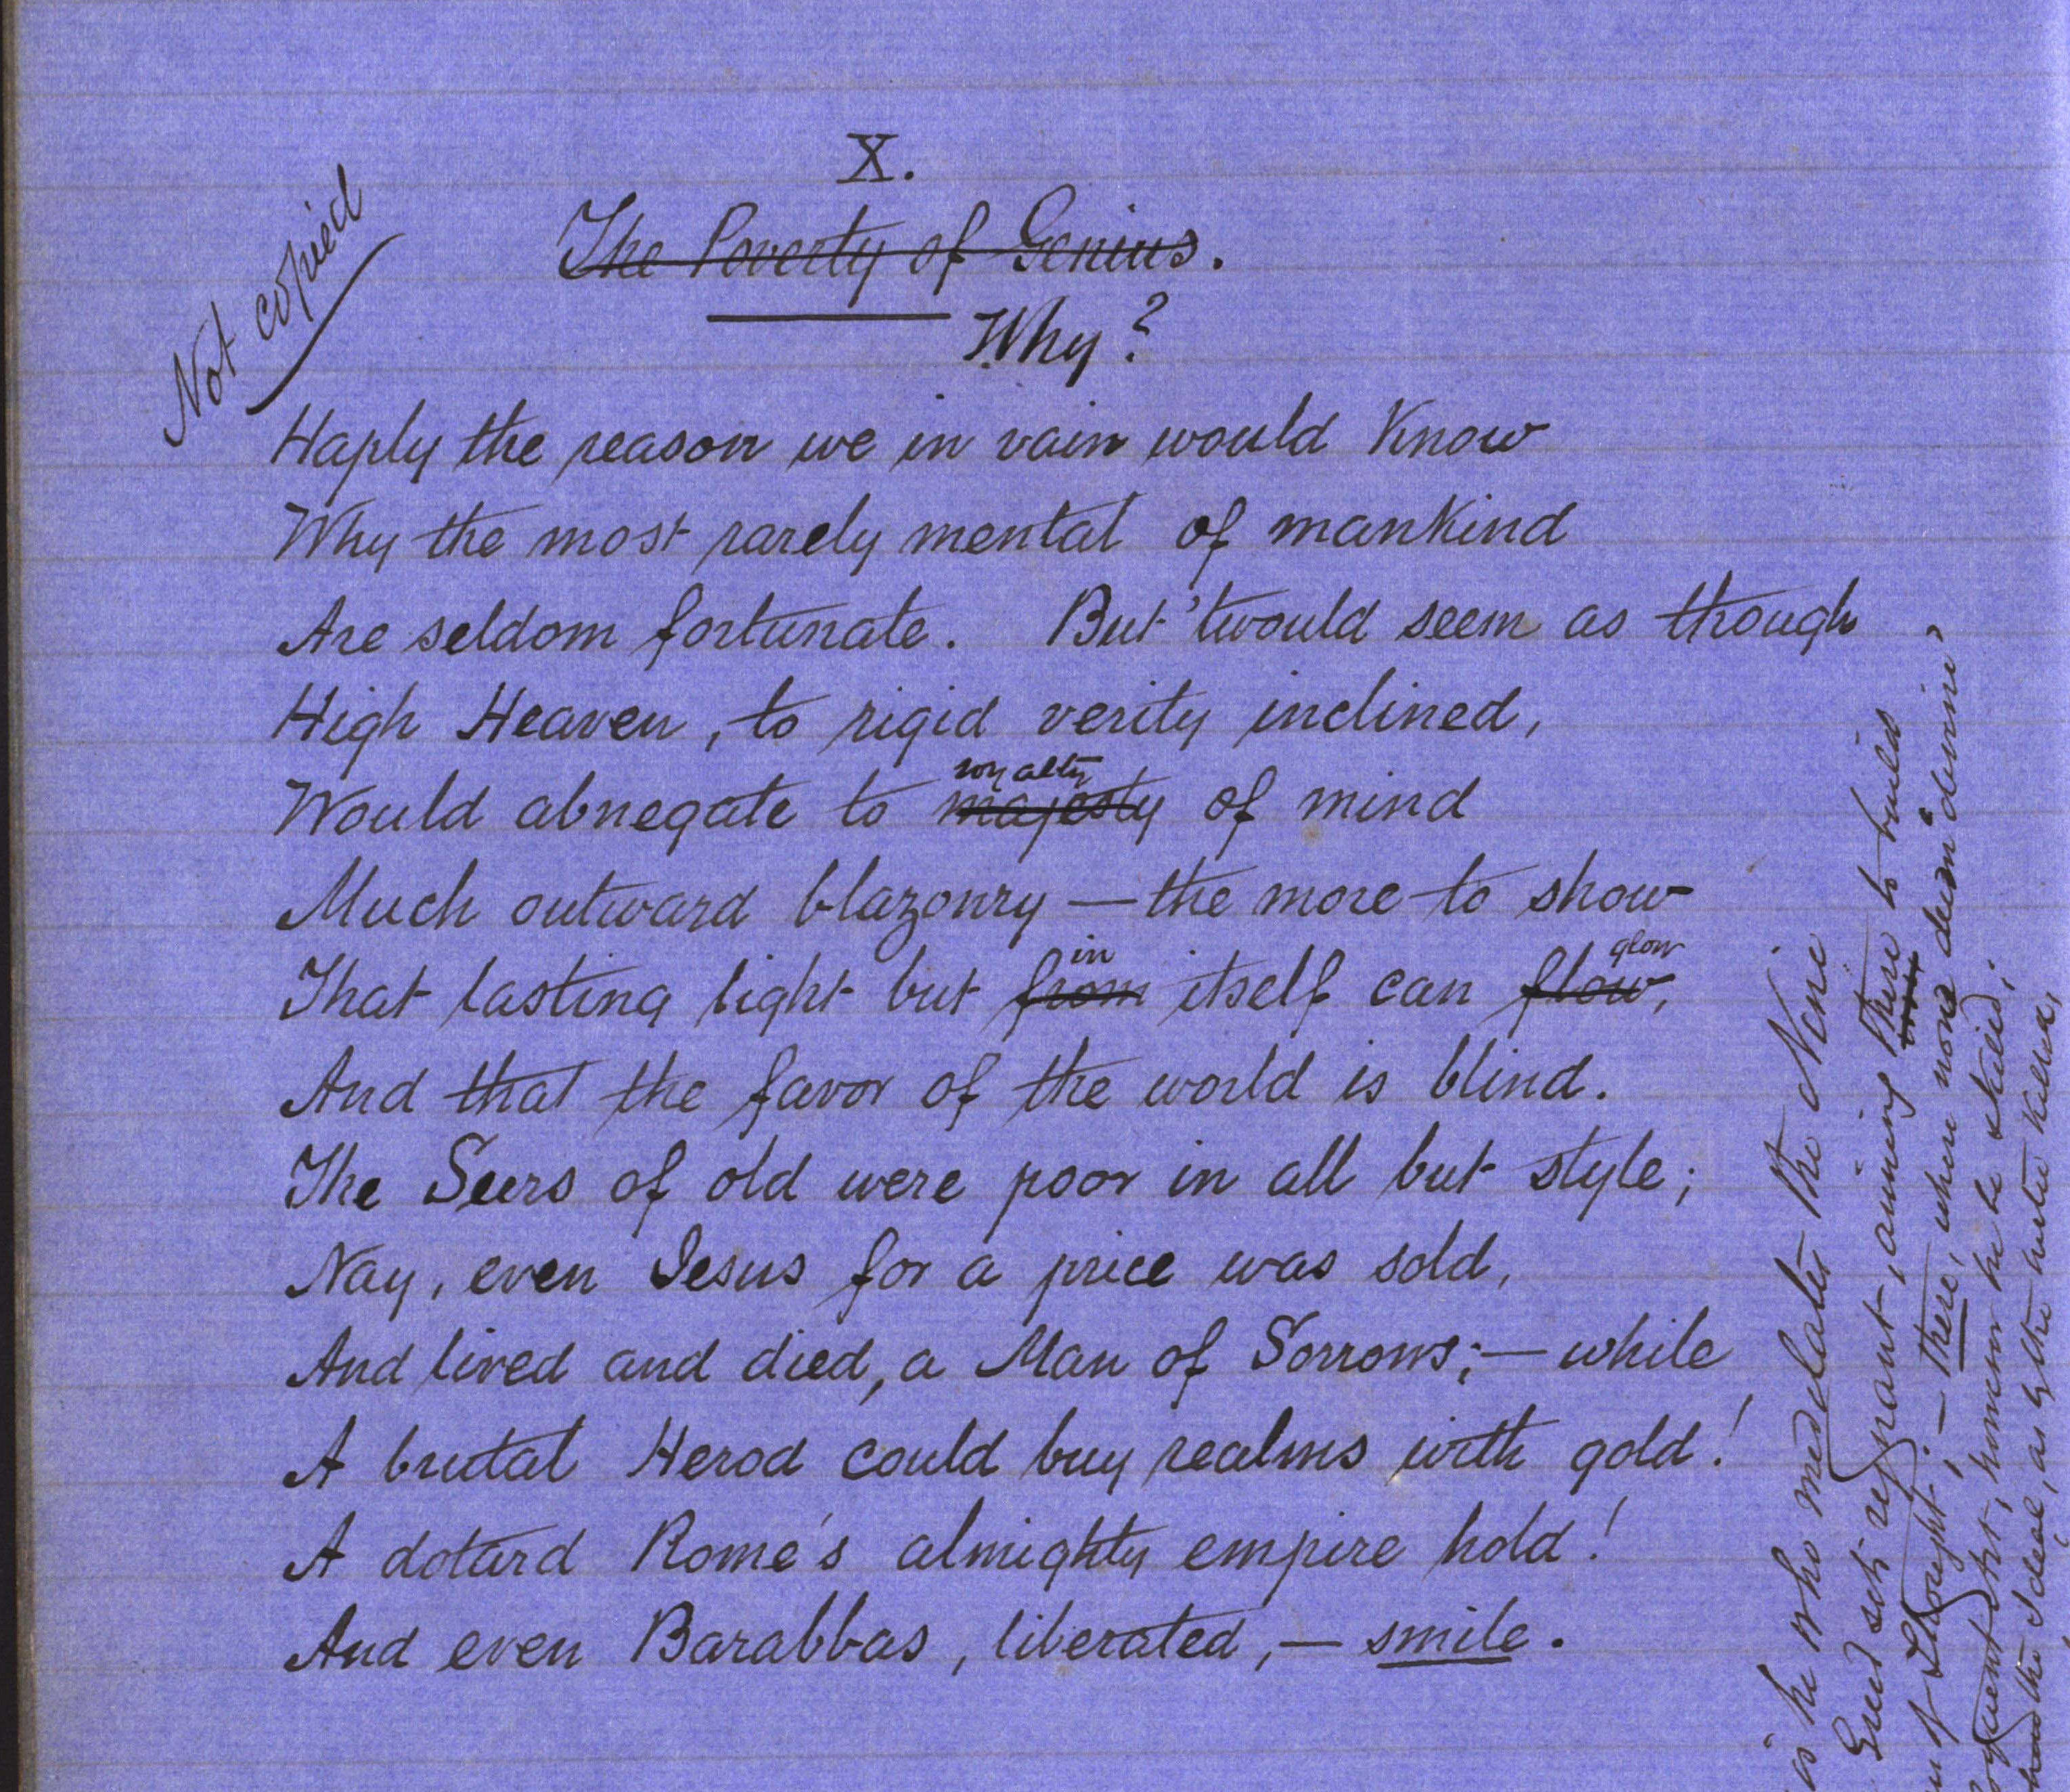 X.
Not copied
The Poverty of Genius.
Why?
Haply the reason we in vain would Know
Why the most rarely mental of manKind
Are seldom fortunate. But 'twould seem as though
High Heaven, to rigid verity inclined,
royalty
Would abnegate to majesty of mind
Much outward blazonry — the more to show
in glow
That lasting light but from itself can flow,
And that the favor of the world is blind.
The Seers of old were poor in all but style;
Nay, even Jesus for a price was sold,
And lived and died, a Man of Sorrows; — while
A brutal Herod could buy realms with gold!
A dotard Rome's almighty empire hold!
And even Barabbas, liberated, — smile.
is he who the Nine
Greed sets repugnant, aiming There to build
of Thought; — There, where none deem "divine",
Art, he be skilled;
the Ideal, as by the